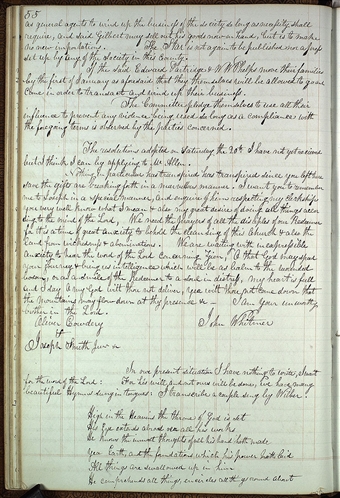 55
as general agents to wind up the business of the society so long as necessity shall
require, and said Gilbert may sell out his goods now on hand, but is to make
no new importations. The Star is not again to be published nor a press
set up by any of the Society in this County.
If the said Edward Partridge & W.W. Phelps move their families
by the first of January as aforesaid that they themselves will be allowed to go and
come in order to transact and wind up their business.
The Committee pledge themselves to use all their
influence to prevent any violence being used so long as a compliance with
the foregoing terms is observed by the parties concerned.
The resolutions adopted on Saturday the 20th I have not yet received
but I think I can by applying to Mr. Allen.
Nothing in particular has transpired since you left here
save the gifts are breaking forth in a marvelous manner. I want you to remember
me to Joseph in a special manner, and enquire of him respecting my Clerkship
you very well know what I mean & also my great desire of doing all things accor-
ding to the mind of the Lord. We need the prayers of all the disciples of our Redeemer
for it is a time of great anxiety to behold the cleansing of this Church & also the
land from wickedness & abominations. We are waiting with inexpressible
anxiety to hear the word of the Lord concerning Zion, O that God may speed
your journey & bring us intelligence which will be as balm to the wounded
or as a smile of the Redeemer to a soul in distress, my heart is full
and I say O my God wilt thou not deliver, yea wilt thou not come down that
the mountains may flow down at thy presence &c — I am your unworthy
brother in the Lord.
Oliver Cowdery
John Whitmer
Joseph Smith Junr &c
In our present situation I have nothing to write, I wait
for the word of the Lord: For his will, and not ours will be done, we have many
beautiful Hymns sung in tongues: I transcribe a couple sung by Wilber.
High in the Heavens the throne of God is set
His Eye extends abroad o'er all his works
He knows the inmost thoughts of all his hand hath made
Yea Earth, and the foundations which his power hath laid
All things are swallowed up in him
He comprehends all things, encircles all things round about